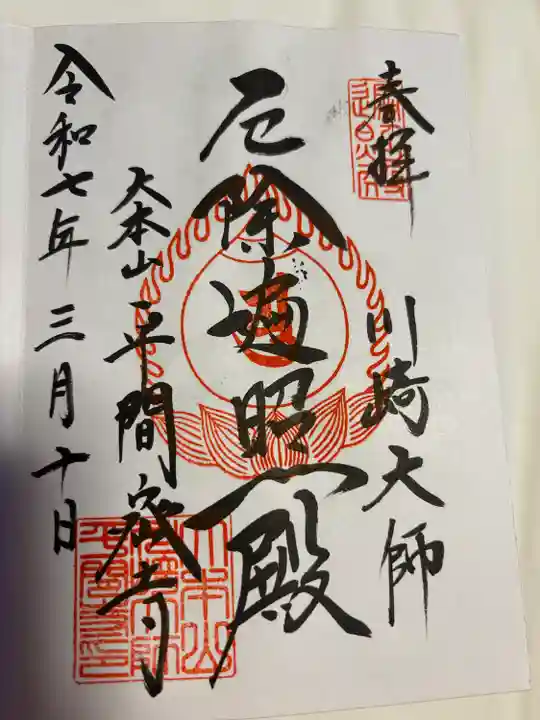 奉拝
川崎大師
厄除遍照殿
大本山平間寺
令和七年三月十日